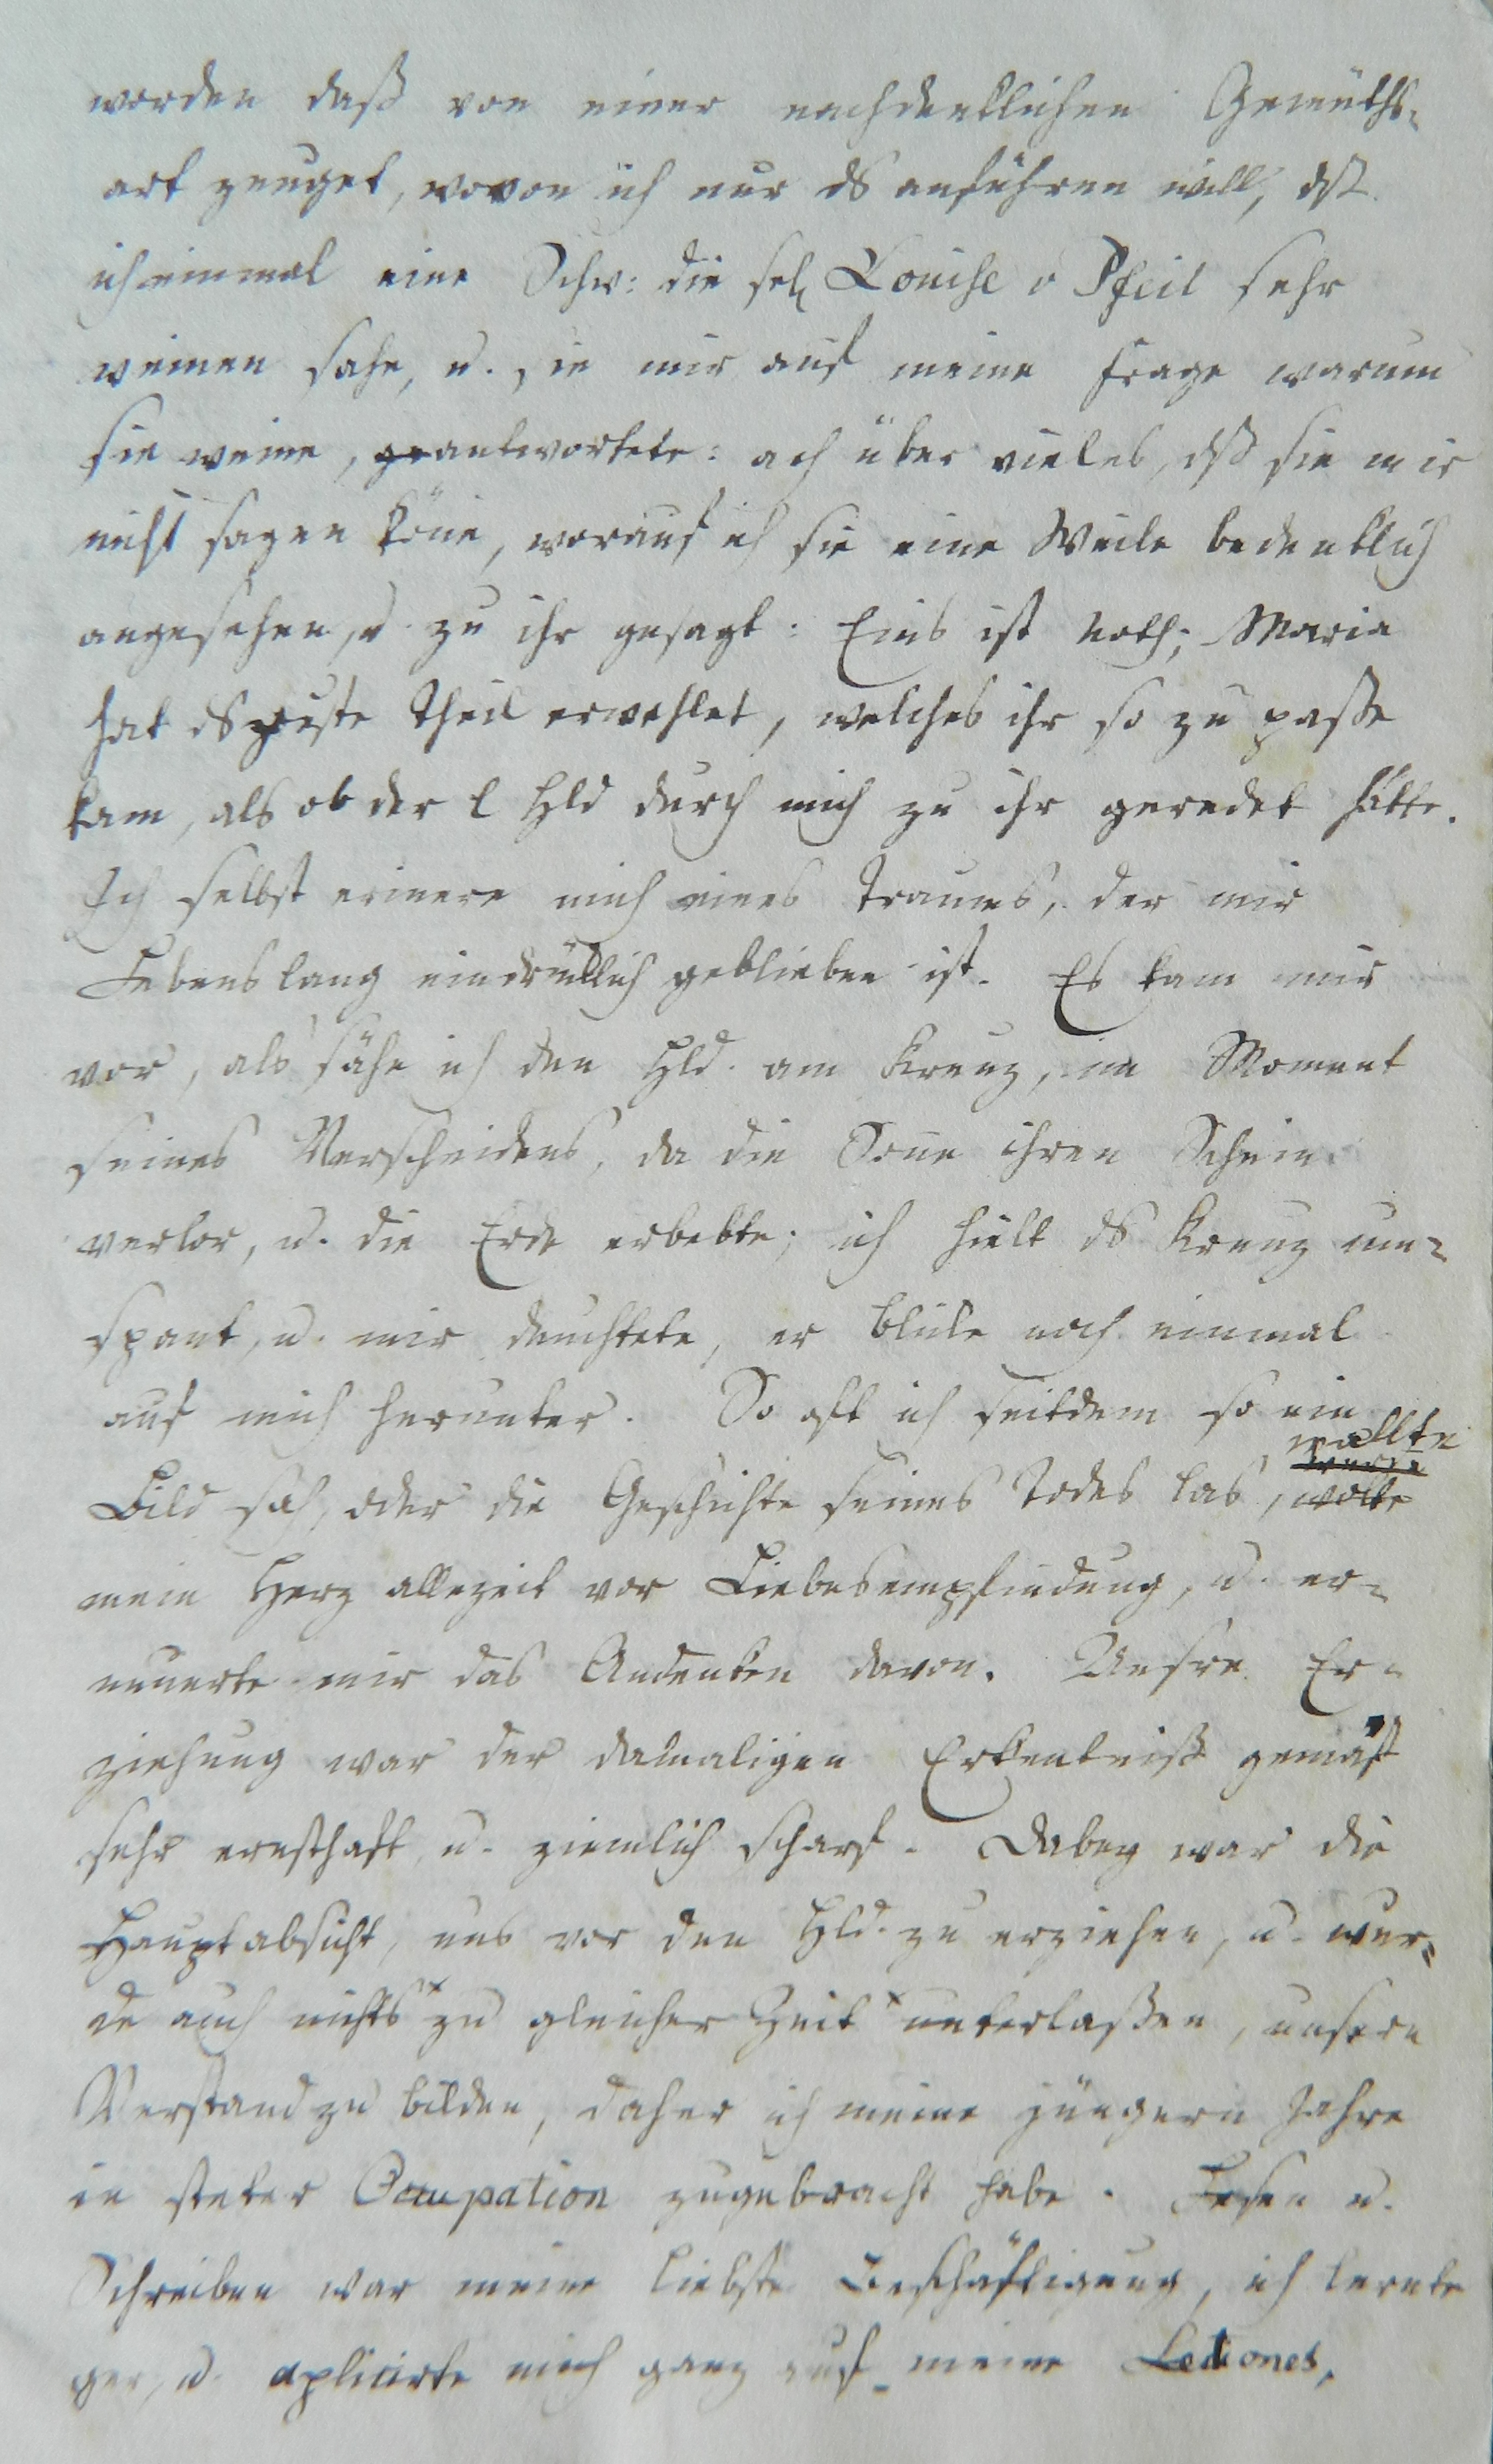 worden daß von einer nachdenklichen Gemüths-
art zeuget, wovon ich nur ds anführen will, dß
ich einmal eine Schw: die sel Louise v Pfeil sehr
weinen sahe, u. sie mir auf meine Frage warum
sie weine, geantwortete: ach über vieles, dß sie mir
nicht sagen köne, worauf ich sie eine Weile bedenklich
angesehen, u. zu ihr gesagt: Eins ist noth; Maria
hat ds gute Theil erwehlet, welches ihr so zu paße
kam, als ob der l Hld durch mich zu ihr geredet hätte.
Ich selbst erinere mich eines Traumes, der mir
Lebenslang eindrüklich geblieben ist. Es kam mir
vor, als sähe ich den Hld. am Kreuz, im Moment
seines Verscheidens, da die Sone ihren Schein
verlor, u. die Erde erbebte; ich hielt ds Kreuz um-
spant, u. mir deuchtete, er blikte noch einmal
auf mich herunter. So oft ich seitdem so ein
wallte
Bild sah, oder die Geschichte seines Todes las, wolte
mein Herz allezeit vor Liebesempfindung, u. er-
neuerte mir das Andenken davon. Unsre Er-
ziehung war der damaligen Erkentniß gemäß
sehr ernsthaft, u. ziemlich scharf. Dabey war die
Hauptabsicht, uns vor den Hld. zu erziehen, u. wur-
de auch nichts x zu gleicher Zeit x unterlaßen, unsern
Verstand zu bilden, daher ich meine jüngern Jahre
in steter Occupation zugebracht habe. Lesen u.
Schreiben war meine liebste Beschäftigung, ich lernte
gern, u. aplicirte mich ganz auf meine Lectiones,